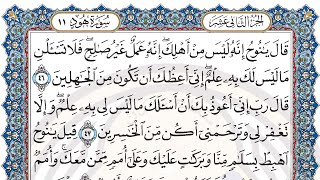 الجزء الثاني عشر سورة هود ١١
قَالَ يَٰنُوحُ إِنَّهُۥ لَيْسَ مِنْ أَهْلِكَ إِنَّهُۥ عَمَلٌ غَيْرُ صَٰلِحٍ فَلَا تَسْـَٔلْنِ
مَا لَيْسَ لَكَ بِهِۦ عِلْمٌ إِنِّىٓ أَعِظُكَ أَن تَكُونَ مِنَ ٱلْجَٰهِلِينَ ٤٦
قَالَ رَبِّ إِنِّىٓ أَعُوذُ بِكَ أَنْ أَسْـَٔلَكَ مَا لَيْسَ لِى بِهِۦ عِلْمٌ وَإِلَّا
تَغْفِرْ لِى وَتَرْحَمْنِىٓ أَكُن مِّنَ ٱلْخَٰسِرِينَ ٤٧ قِيلَ يَٰنُوحُ
ٱهْبِطْ بِسَلَٰمٍ مِّنَّا وَبَرَكَٰتٍ عَلَيْكَ وَعَلَىٰٓ أُمَمٍ مِّمَّن مَّعَكَ وَأُمَمٌ